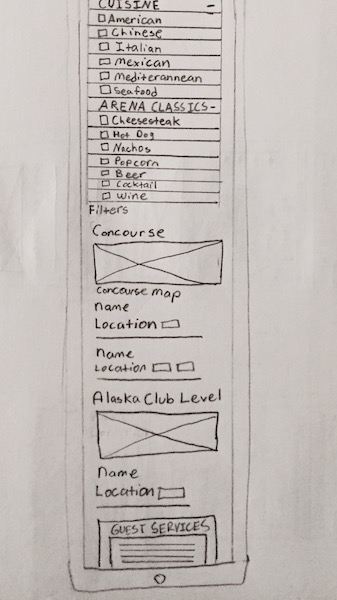 CUISINE -
American
Chinese
Italian
Mexican
Mediterannean
Seafood
ARENA CLASSICS -
Cheesesteak
Hot Dog
Nachos
Popcorn
Beer
Cocktail
Wine
Filters
Concourse
Concourse Map
Name
Location
Name
Location
Alaska Club Level
Name
Location
GUEST SERVICES